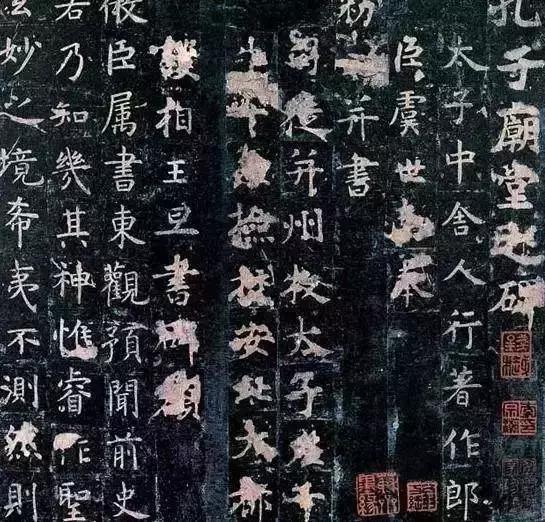 孔子廟堂之碑
太子中舍人行著作郎
臣虞世南奉
勅撰并書
司徒并州牧太子左千
牛率兼撿挍安北大都
護相王旦書碑額
微臣属書東觀預聞前史
若乃知幾其神惟睿作聖
玄妙之境希夷不測然則